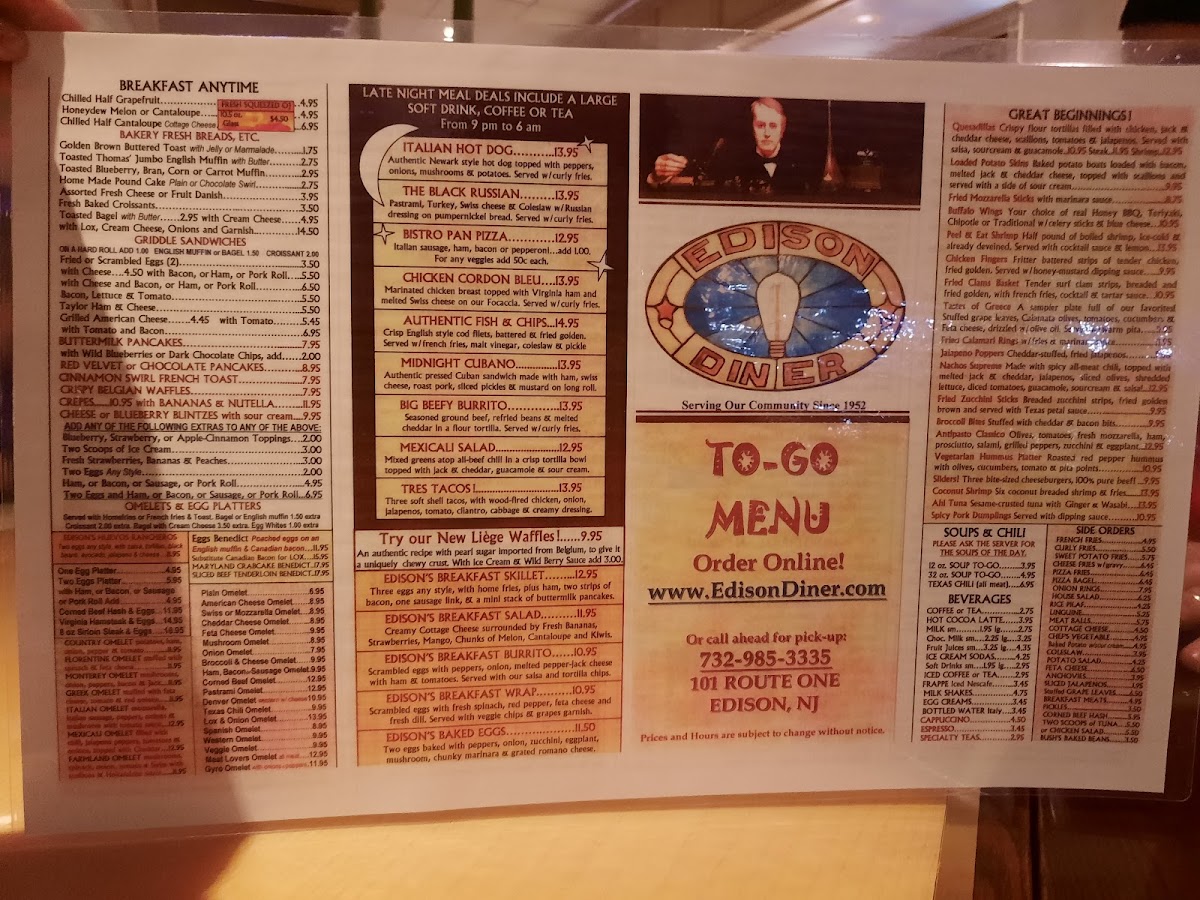 BREAKFAST ANYTIME
Chilled Half Grapefruit....4.95
Honeydew Melon or Cantaloupe....4.95
Chilled Half Cantaloupe Cottage Cheese 6.95
FRESH SQUEEZED OJ
10.5 oz. Glass $4.50
BAKERY FRESH BREADS, ETC.
Golden Brown Buttered Toast with Jelly or Marmalade....1.75
Toasted Thomas' Jumbo English Muffin with Butter....2.75
Toasted Blueberry, Bran, Corn or Carrot Muffin....2.95
Home Made Pound Cake Plain or Chocolate Swirl....2.75
Assorted Fresh Cheese or Fruit Danish....3.95
Fresh Baked Croissants....3.50
Toasted Bagel with Butter....2.95 with Cream Cheese....4.95
with Lox, Cream Cheese, Onions and Garnish....14.50
GRIDDLE SANDWICHES
ON A HARD ROLL ADD 1.00 ENGLISH MUFFIN or BAGEL 1.50 CROISSANT 2.00
Fried or Scrambled Eggs (2)....3.50
with Cheese....4.50 with Bacon, or Ham, or Pork Roll....5.50
with Cheese and Bacon, or Ham, or Pork Roll....6.50
Bacon, Lettuce & Tomato....5.50
Taylor Ham & Cheese....5.50
Grilled American Cheese....4.45 with Tomato....5.45
with Tomato and Bacon....6.95
BUTTERMILK PANCAKES....7.95
with Wild Blueberries or Dark Chocolate Chips, add....2.00
RED VELVET or CHOCOLATE PANCAKES....8.95
CINNAMON SWIRL FRENCH TOAST....7.95
CRISPY BELGIAN WAFFLES....7.95
CREPES....10.95 with BANANAS & NUTELLA....11.95
CHEESE or BLUEBERRY BLINTZES with sour cream....9.95
ADD ANY OF THE FOLLOWING EXTRAS TO ANY OF THE ABOVE:
Blueberry, Strawberry, or Apple-Cinnamon Toppings....2.00
Two Scoops of Ice Cream....3.00
Fresh Strawberries, Bananas & Peaches....3.00
Two Eggs Any Style....2.00
Ham, or Bacon, or Sausage, or Pork Roll....4.95
Two Eggs and Ham, or Bacon, or Sausage, or Pork Roll...6.95
OMELETS & EGG PLATTERS
Served with Homefries or French fries & Toast. Bagel or English muffin 1.50 extra
Croissant 2.00 extra. Bagel with Cream Cheese 3.50 extra. Egg Whites 1.00 extra
EDISON'S HUEVOS RANCHEROS
One Egg Platter....4.95
Two Eggs Platter....5.95
with Ham, or Bacon, or Sausage
or Pork Roll Add....4.95
Corned Beef Hash & Eggs....11.95
Virginia Hamsteak & Eggs....14.95
8 oz Sirloin Steak & Eggs
COUNTRY OMELET
FLORENTINE OMELET
MONTEREY OMELET
GREEK OMELET
ITALIAN OMELET
MEXICALI OMELET
FARMLAND OMELET
Eggs Benedict Poached eggs on an
English muffin & Canadian bacon....11.95
Substitute Canadian Bacon for LOX....15.95
MARYLAND CRABCAKE BENEDICT..17.95
SLICED BEEF TENDERLOIN BENEDICT..17.95
Plain Omelet....6.95
American Cheese Omelet....8.95
Swiss or Mozzarella Omelet....8.95
Cheddar Cheese Omelet....8.95
Feta Cheese Omelet....9.95
Mushroom Omelet....8.95
Onion Omelet....7.95
Broccoli & Cheese Omelet....9.95
Ham, Bacon or Sausage Omelet 9.95
Corned Beef Omelet....12.95
Pastrami Omelet....12.95
Denver Omelet....10.95
Texas Chili Omelet....9.95
Lox & Onion Omelet....13.95
Spanish Omelet....8.95
Western Omelet....9.95
Veggie Omelet....9.95
Meat Lovers Omelet....12.95
Gyro Omelet with onions & peppers....11.95
LATE NIGHT MEAL DEALS INCLUDE A LARGE
SOFT DRINK, COFFEE OR TEA
From 9 pm to 6 am
ITALIAN HOT DOG....13.95
Authentic Newark style hot dog topped with peppers,
onions, mushrooms & potatoes. Served w/curly fries.
THE BLACK RUSSIAN....13.95
Pastrami, Turkey, Swiss cheese & Coleslaw w/Russian
dressing on pumpernickel bread. Served w/curly fries.
BISTRO PAN PIZZA....12.95
Italian sausage, ham, bacon or pepperoni...add 1.00.
For any veggies add 50c each.
CHICKEN CORDON BLEU...13.95
Marinated chicken breast topped with Virginia ham and
melted Swiss cheese on our Focaccia. Served w/curly fries.
AUTHENTIC FISH & CHIPS...14.95
Crisp English style cod filets, battered & fried golden.
Served w/french fries, malt vinegar, coleslaw & pickle
MIDNIGHT CUBANO....13.95
Authentic pressed Cuban sandwich made with ham, swiss
cheese, roast pork, sliced pickles & mustard on long roll.
BIG BEEFY BURRITO....13.95
Seasoned ground beef, refried beans & melted
cheddar in a flour tortilla. Served w/curly fries.
MEXICALI SALAD....12.95
Mixed greens atop all-beef chili in a crisp tortilla bowl
topped with jack & cheddar, guacamole & sour cream.
TRES TACOS!....13.95
Three soft shell tacos, with wood-fired chicken, onion,
jalapenos, tomato, cilantro, cabbage & creamy dressing.
Try our New Liège Waffles!.....9.95
An authentic recipe with pearl sugar imported from Belgium, to give it
a uniquely chewy crust. With Ice Cream & Wild Berry Sauce add 3.00.
EDISON'S BREAKFAST SKILLET....12.95
Three eggs any style, with home fries, plus ham, two strips of
bacon, one sausage link, & a mini stack of buttermilk pancakes.
EDISON'S BREAKFAST SALAD....11.95
Creamy Cottage Cheese surrounded by Fresh Bananas,
Strawberries, Mango, Chunks of Melon, Cantaloupe and Kiwis.
EDISON'S BREAKFAST BURRITO....10.95
Scrambled eggs with peppers, onion, melted pepper-jack cheese
with ham & tomatoes. Served with our salsa and tortilla chips.
EDISON'S BREAKFAST WRAP....10.95
Scrambled eggs with fresh spinach, red pepper, feta cheese and
fresh dill. Served with veggie chips & grapes garnish.
EDISON'S BAKED EGGS....11.50
Two eggs baked with peppers, onion, zucchini, eggplant,
mushroom, chunky marinara & grated romano cheese.
EDISON
DINER
Serving Our Community Since 1952
TO-GO
MENU
Order Online!
www.EdisonDiner.com
Or call ahead for pick-up:
732-985-3335
101 ROUTE ONE
EDISON, NJ
Prices and Hours are subject to change without notice.
GREAT BEGINNINGS!
Quesadillas Crispy flour tortillas filled with chicken, jack &
cheddar cheese, scallions, tomatoes & jalapenos. Served with
salsa, sourcream & guacamole..10.95 Steak..11.95 Shrimp..12.95
Loaded Potato Skins Baked potato boats loaded with bacon,
melted jack & cheddar cheese, topped with scallions and
served with a side of sour cream....9.95
Fried Mozzarella Sticks with marinara sauce....8.75
Buffalo Wings Your choice of real Honey BBQ, Teriyaki,
Chipotle or Traditional w/celery sticks & blue cheese..10.95
Peel & Eat Shrimp Half pound of boiled shrimp, ice-cold &
already deveined. Served with cocktail sauce & lemon...13.95
Chicken Fingers Fritter battered strips of tender chicken,
fried golden. Served w/honey-mustard dipping sauce....9.95
Fried Clams Basket Tender surf clam strips, breaded and
fried golden, with french fries, cocktail & tartar sauce..10.95
Tastes of Greece A sampler plate full of our favorites!
Stuffed grape leaves, Calamata olives, tomatoes, cucumbers &
Feta cheese, drizzled w/olive oil. Served w/warm pita
Fried Calamari Rings w/fries & marinara sauce
Jalapeno Poppers Cheddar-stuffed, fried jalapenos
Nachos Supreme Made with spicy all-meat chili, topped with
melted jack & cheddar, jalapenos, sliced olives, shredded
lettuce, diced tomatoes, guacamole, sourcream & salsa!..12.95
Fried Zucchini Sticks Breaded zucchini strips, fried golden
brown and served with Texas petal sauce....9.95
Broccoli Bites Stuffed with cheddar & bacon bits....9.95
Antipasto Classico Olives, tomatoes, fresh mozzarella, ham,
prosciutto, salami, grilled peppers, zucchini & eggplant..12.95
Vegetarian Hummus Platter Roasted red pepper hummus
with olives, cucumbers, tomato & pita points....10.95
Sliders! Three bite-sized cheeseburgers, 100% pure beef! ..9.95
Coconut Shrimp Six coconut breaded shrimp & fries....13.95
Ahi Tuna Sesame-crusted tuna with Ginger & Wasabi....13.95
Spicy Pork Dumplings Served with dipping sauce....10.95
SOUPS & CHILI
PLEASE ASK THE SERVER FOR
THE SOUPS OF THE DAY.
12 oz. SOUP TO-GO....3.95
32 oz. SOUP TO-GO....4.95
TEXAS CHILI (all meat)....6.95
BEVERAGES
COFFEE or TEA....2.75
HOT COCOA LATTE....3.95
MILK sm....1.95 lg....2.75
Choc. Milk sm....2.25 lg...3.25
Fruit Juices sm...3.25 lg...4.35
ICE CREAM SODAS....4.25
Soft Drinks sm...1.95 lg...2.95
ICED COFFEE or TEA....2.95
FRAPPE Iced Nescafe....3.45
MILK SHAKES....4.75
EGG CREAMS....3.45
BOTTLED WATER Italy...3.45
CAPPUCCINO....4.50
ESPRESSO....3.45
SPECIALTY TEAS....2.95
SIDE ORDERS
FRENCH FRIES....4.95
CURLY FRIES....5.50
SWEET POTATO FRIES....5.75
CHEESE FRIES w/gravy....6.45
PIZZA FRIES....6.45
PIZZA BAGEL....6.45
ONION RINGS....7.95
HOUSE SALAD....4.25
RICE PILAF....4.25
LINGUINE....5.25
MEAT BALLS....5.75
COTTAGE CHEESE....4.50
CHEF'S VEGETABLE....4.95
Baked Potato w/sour cream..4.95
COLESLAW....3.95
POTATO SALAD....4.25
FETA CHEESE....4.50
ANCHOVIES....3.95
SLICED JALAPENOS....1.95
Stuffed GRAPE LEAVES....6.50
BREAKFAST MEATS....4.95
PICKLES....3.50
CORNED BEEF HASH....5.95
TWO SCOOPS of TUNA
or CHICKEN SALAD....5.50
BUSH'S BAKED BEANS....3.50